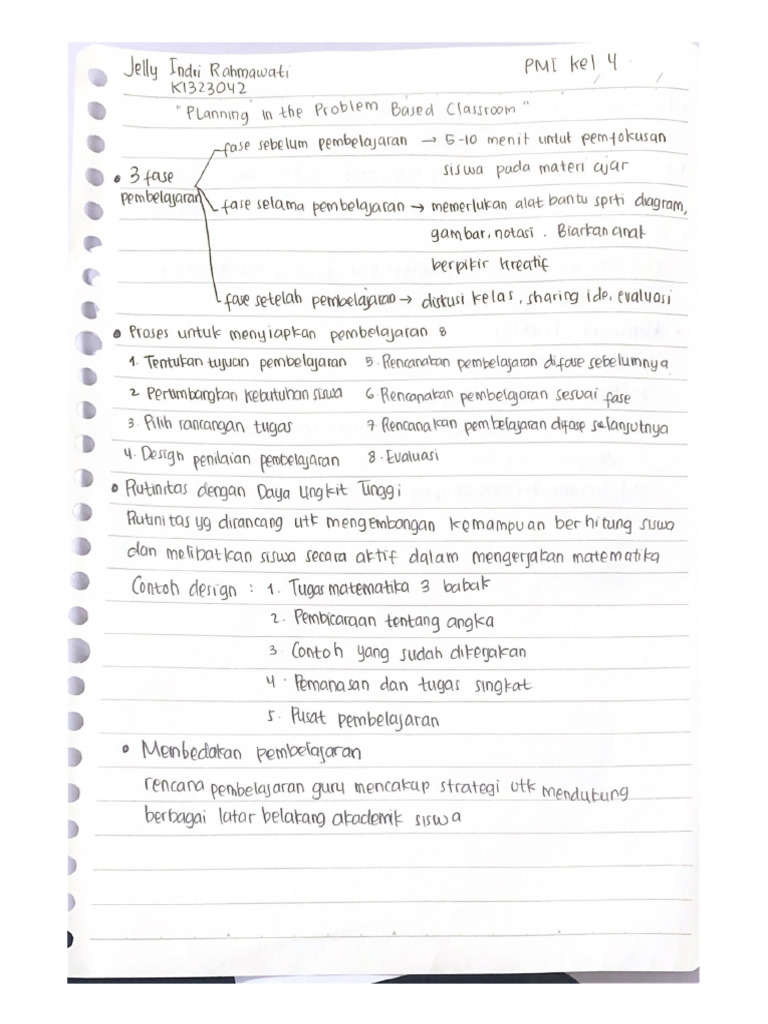 Jelly Indri Rahmawati
PMI kel 4
K1323042
"Planning In the Problem Based Classroom"
fase sebelum pembelajaran → 5-10 menit untuk pemfokusan
siswa pada materi ajar
• 3 fase
pembelajaran
fase selama pembelajaran → memerlukan alat bantu sprti diagram,
gambar, notasi. Biarkan anak
berpikir kreatif
fase setelah pembelajaran → diskusi kelas, sharing ide, evaluasi
• Proses untuk menyiapkan pembelajaran 8
1. Tentukan tujuan pembelajaran 5. Rencanakan pembelajaran difase sebelumnya
2 Pertimbangkan kebutuhan siswa 6 Rencanakan pembelajaran sesuai fase
3. Pilih rancangan tugas 7. Rencanakan pembelajaran difase selanjutnya
4. Design penilaian pembelajaran 8. Evaluasi
• Rutinitas dengan Daya Ungkit Tinggi
Rutinitas yg dirancang utk mengembangan kemampuan berhitung siswa
dan melibatkan siswa secara aktif dalam mengerjakan matematika
Contoh design : 1. Tugas matematika 3 babak
2. Pembicaraan tentang angka
3. Contoh yang sudah dikerjakan
4. Pemanasan dan tugas singkat
5. Pusat pembelajaran
• Membedakan pembelajaran
rencana pembelajaran guru mencakup strategi utk mendukung
berbagai latar belakang akademik siswa